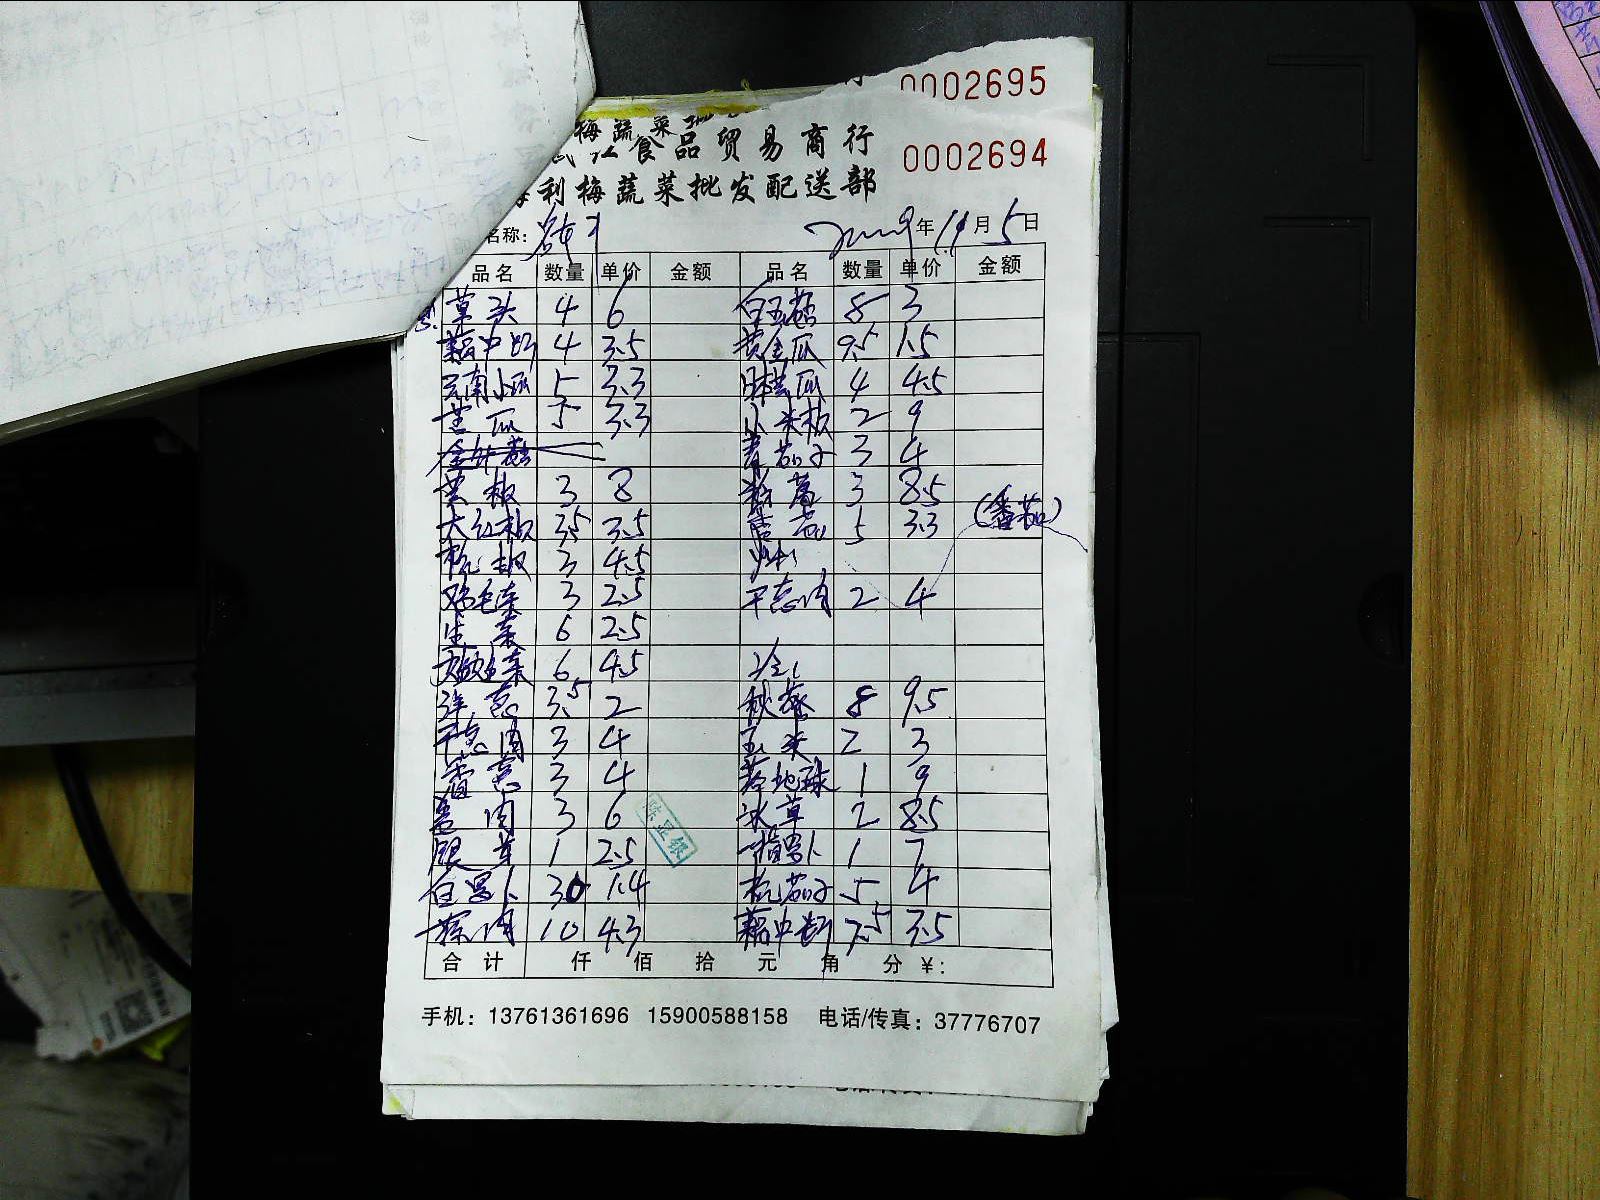 0002695
梅蔬菜批
食品贸易商行
0002694
利梅蔬菜批发配送部
名称: 年11月5日
品名 数量 单价 金额 品名 数量 单价 金额
草头 4 6 白玉菇 8 3
藕中段 4 3.5 黄金瓜 9.5 1.5
云南小瓜 5 3.3 日本黄瓜 4 4.5
黄瓜 5 3.3 小米椒 2 9
金针菇 青茄子 3 4
黄椒 3 8 3 8.5
大红椒 3.5 3.5 番茄 5 3.3 (番茄)
杭椒 3 4.5
鸡毛菜 3 2.5 干葱肉 2 4
生菜 6 2.5
6 4.5 冷:
洋葱 3.5 2 秋葵 8 9.5
干葱肉 3 4 2 3
香葱 3 4 1 9
姜肉 3 6 冰草 2 8.5
银芽 1 2.5 一指罗卜 1 7
白罗卜 30 1.4 杭茄子 5 4
10 4.3 藕中段 7.5 3.5
陈显银
合计 仟 佰 拾 元 角 分 ¥:
手机: 13761361696 15900588158 电话/传真: 37776707